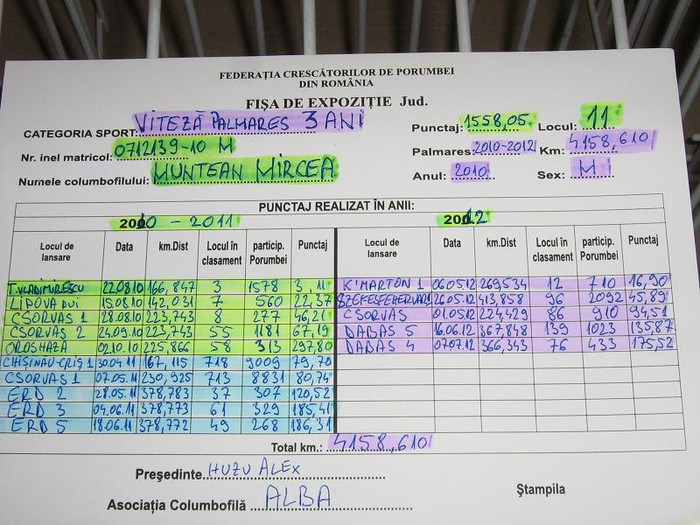 FEDERAȚIA CRESCĂTORILOR DE PORUMBEI
DIN ROMÂNIA
FIȘA DE EXPOZIȚIE Jud.
CATEGORIA SPORT: VITEZĂ PALMARES 3 ANI Punctaj: 1558,05 Locul: 11
Nr. inel matricol: 0712139-10 M Palmares: 2010-2012 Km: 4158,610
Numele columbofilului: MUNTEAN MIRCEA Anul: 2010 Sex: M
PUNCTAJ REALIZAT ÎN ANII:
2010 - 2011 2012
Locul de lansare Data km.Dist Locul în clasament particip. Porumbei Punctaj Locul de lansare Data km.Dist Locul în clasament particip. Porumbei Punctaj
T.VLADIMIRESCU 22.08.10 166,847 3 1578 3,11 K'MARTON 1 06.05.12 269,534 12 710 16,90
LIPOVA DUI 15.08.10 142,031 7 560 22,37 SZEKESFEHERVAR 1 26.05.12 413,858 96 2092 45,89
CSORVAS 1 28.08.10 223,743 8 277 46,21 CSORVAS 01.05.12 224,429 86 910 94,51
CSORVAS 2 24.09.10 223,743 55 1181 67,19 DABAS 5 16.06.12 367,848 139 1023 135,87
OROSHAZA 02.10.10 225,866 58 313 297,80 DABAS 4 07.07.12 366,343 76 433 175,52
CHIȘINAU-CRIȘ 1 30.04.11 167,115 718 9009 79,70
CSORVAS 1 07.05.11 230,925 713 8831 80,74
ERD 2 28.05.11 378,783 37 307 120,52
ERD 3 04.06.11 378,773 61 329 185,41
ERD 5 18.06.11 378,772 49 268 186,31
Total km.: 4158,610
Președinte HUZU ALEX
Asociația Columbofilă ALBA Ștampila